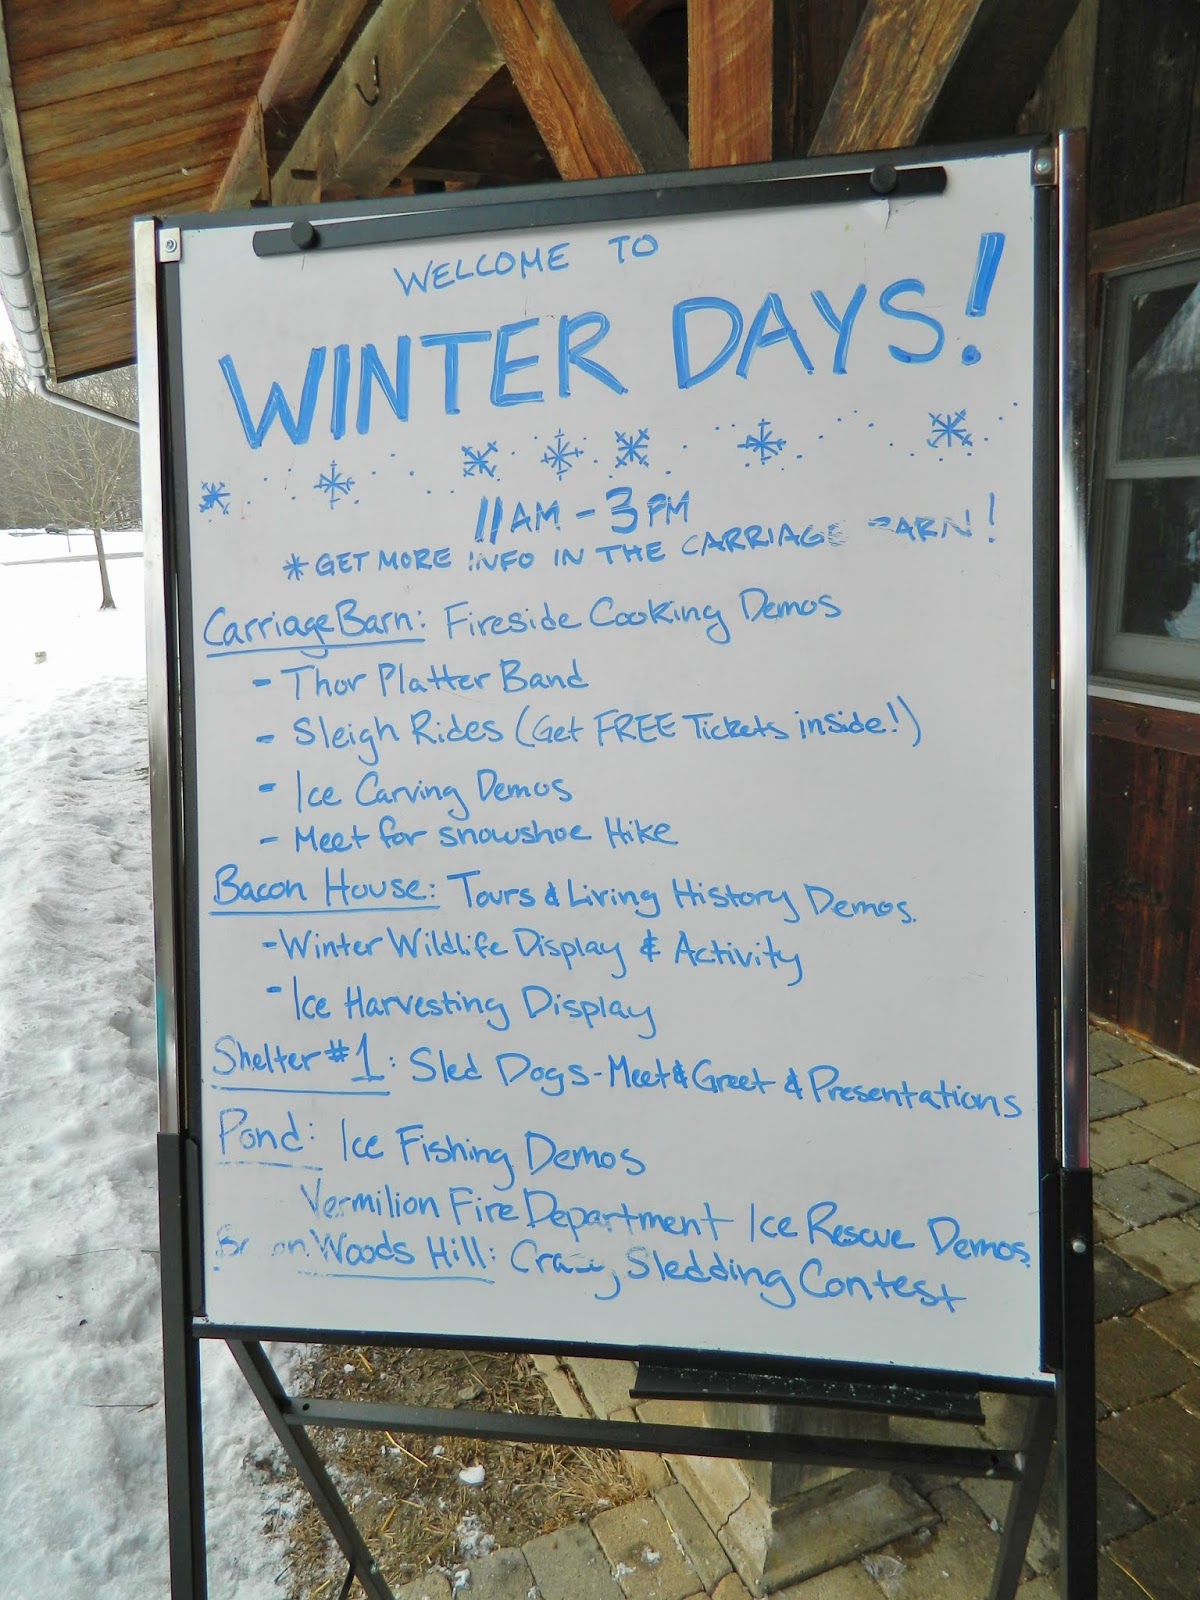 WELCOME TO
WINTER DAYS!
11AM - 3PM
*GET MORE INFO IN THE CARRIAGE BARN!
Carriage Barn: Fireside Cooking Demos
- Thor Platter Band
- Sleigh Rides (Get FREE Tickets inside!)
- Ice Carving Demos
- Meet for snowshoe Hike
Bacon House: Tours & Living History Demos.
- Winter Wildlife Display & Activity
- Ice Harvesting Display
Shelter #1: Sled Dogs - Meet & Greet & Presentations
Pond: Ice Fishing Demos
Vermilion Fire Department Ice Rescue Demos
Woods Hill: Crazy Sledding Contest